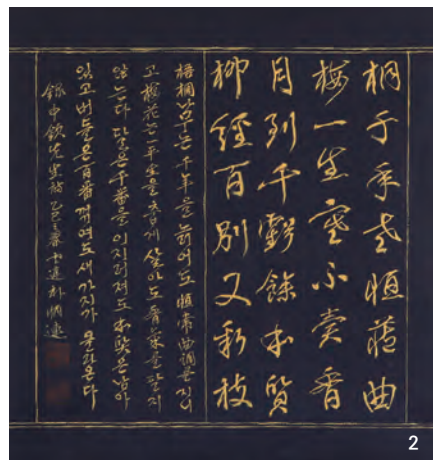 桐千年老恒藏曲
梅一生寒不賣香
月到千虧餘本質
柳經百別又新枝
梧桐나무는 千年을 늙어도 恒常 曲調를 지니
고 梅花는 一平生을 춥게 살아도 香氣를 팔지
않는다 달은 千番을 이지러져도 本質은 남아
있고 버들은 百番 꺾여도 새 가지가 올라온다
錄申欽先生詩 乙巳春
2